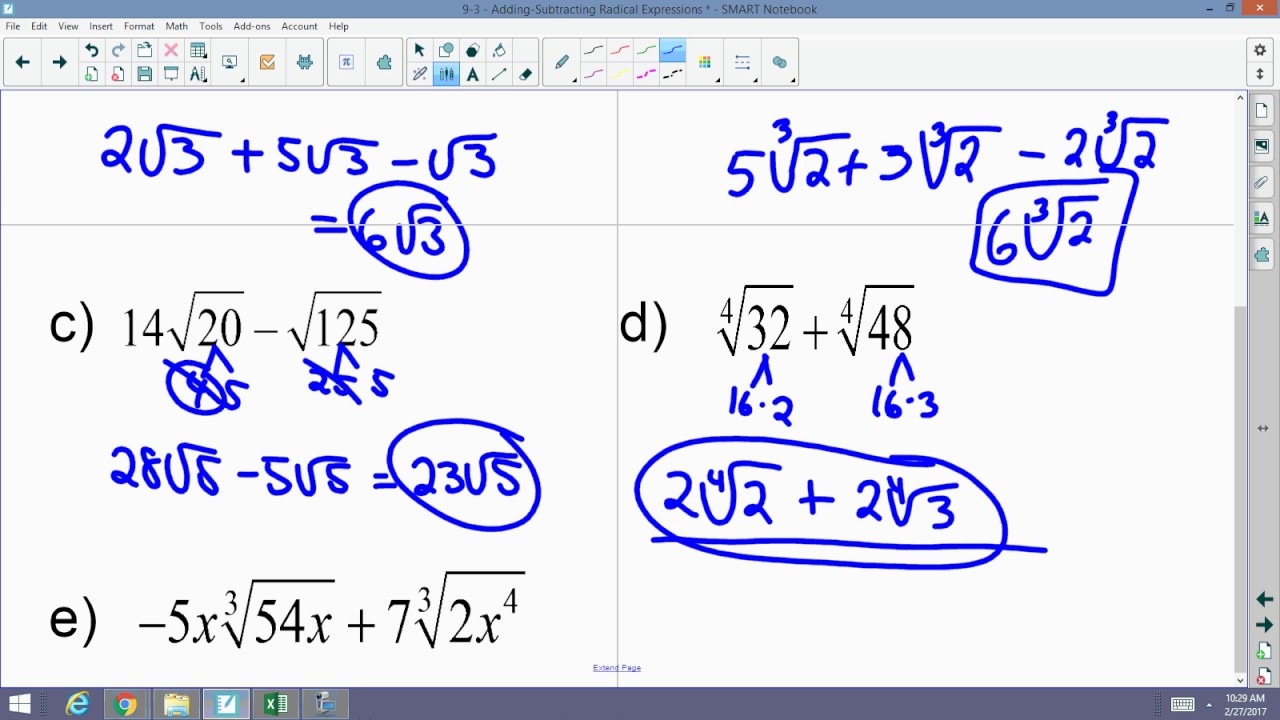 9-3 - Adding-Subtracting Radical Expressions * - SMART Notebook
File Edit View Insert Format Math Tools Add-ons Account Help
2√3 + 5√3 - √3
= 6√3
5∛2 + 3∛2 - 2∛2
6∛2
c) 14√20 − √125
4 5 25 5
28√5 - 5√5 = 23√5
d) ∜32 + ∜48
16·2 16·3
2∜2 + 2∜3
e) −5x∛54x + 7∛2x⁴
Extend Page
10:29 AM
2/27/2017